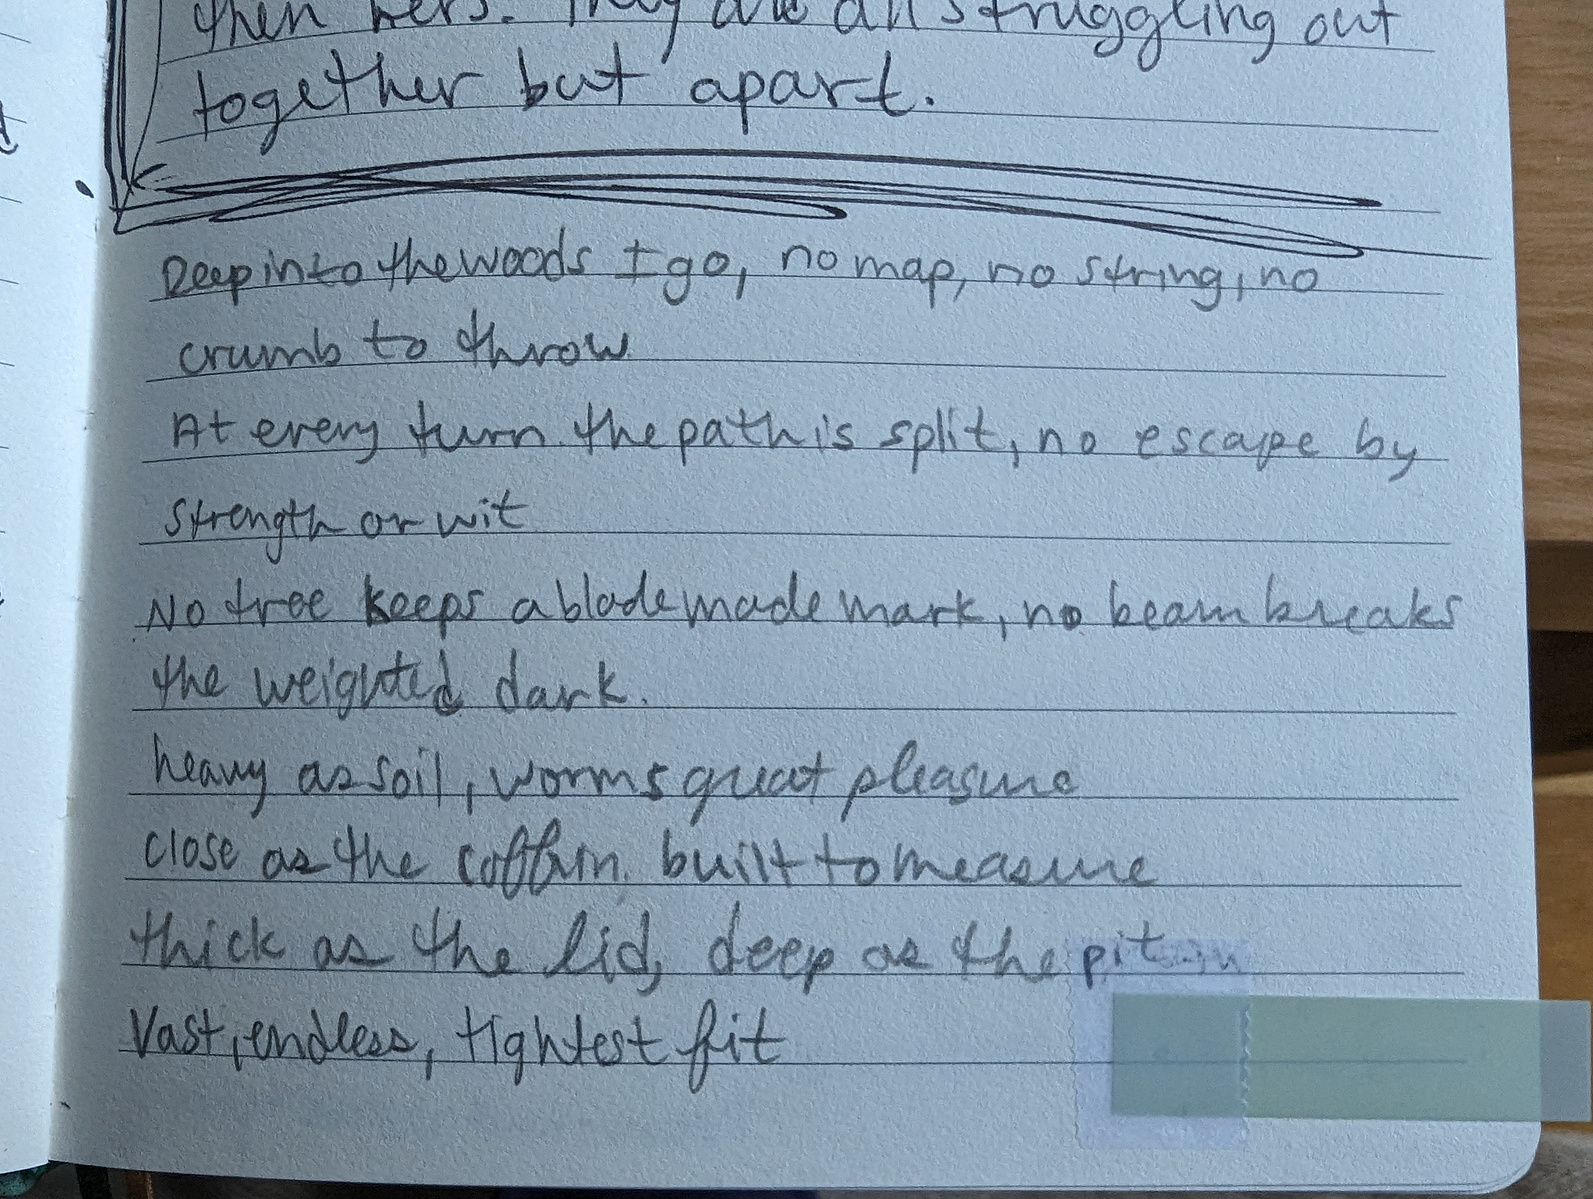 then hers. They are all struggling out
together but apart.
Deep into the woods I go, no map, no string, no
crumb to throw
At every turn the path is split, no escape by
strength or wit
No tree keeps a blade made mark, no beam breaks
the weighted dark.
heavy as soil, worms great pleasure
close as the coffin built to measure
thick as the lid, deep as the pit
Vast, endless, tightest fit